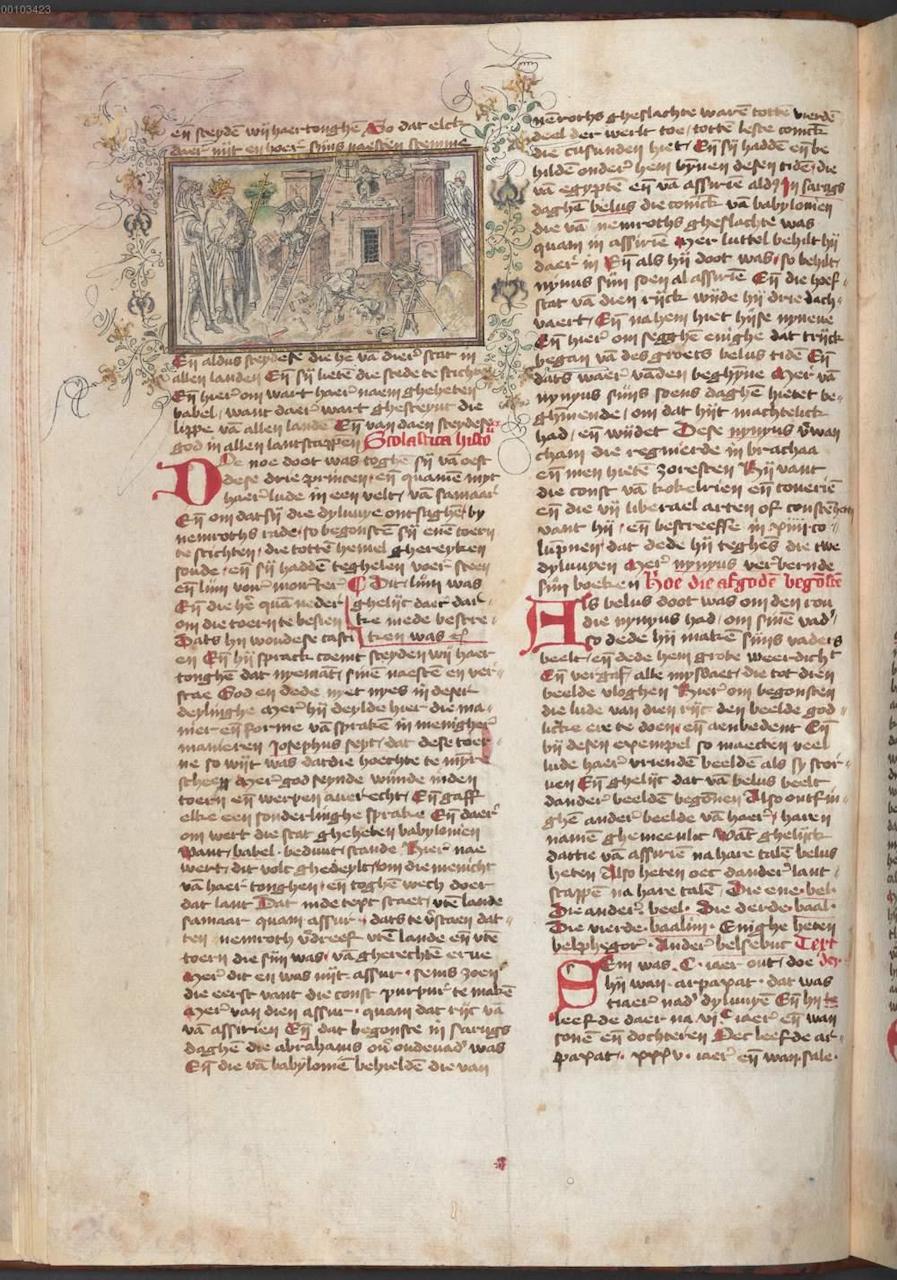 00103423
en sceyden wij haer tonghē So dat elck
daer niit en hoer sijns naesten stemme
Eñ aldus sceydese die he vā dier stat in
allen landen Eñ sij lietē die stede te stichtē
Eñ hier om wart haer naem gheheten
babel / want daer wart ghesceynt die
lippe vā allen lande Eñ van daen sceydese
god in allen lantscappen Scolastica histō
Doe noe doot was toghē sij vā oest
dese drie princen / eñ quamē myt
haer lude in een velt / vā samaar
Eñ om datsij die dyluuye ontsaghē by
nemroths rade / so begonstē sij enē toern
te stichten / die totten hemel ghereyken
soude / eñ sij haddē teghelen voer steen
eñ lijm voir morter C Dit lijm was
Eñ die hē quā neder ghelijc daer dat
om die toern te besien ke mede bestre
Dats hij woudese casti ken was etc
en Eñ hij sprack coemt sceyden wij haer
tonghē dat nyemāt / sine naestē en ver
stae God en dede niet nyes in deser
deylinghe Mer hij deylde hier die ma
nier eñ forme vā spraken in menigher
manieren Josephus seyt / dat dese toer
ne so wijt was dat die hoechte te myre
scheen Mer god seynde winde in den
toern eñ werpen auerecht / Eñ gaff
elke een sonderlinghe sprake Eñ daer
om wert die stat gheheten babylonien
Want / babel · beduut / scande Hier nae
wert / dit volc ghedeylt / om die menicht
vā haer tonghen / en toghē wech doer
dat lant Dat in de text staet / vtē lande
samaar quam assur · dats te v̄staen dat
ten nemroth v̄dreef vten lande eñ vtē
toern die sijn was · vā gherechte erue
Mer dit en was niit assur · sems zoen
die eerst vant die const purpur te makē
Mer van dien assur · quam dat rijc vā
vā assirien Eñ dat begonste in sarugs
daghē die abrahams ou̅ oudeuad̕ was
Eñ die vā babylomē behieldē die van
nēroths gheslachte warē totte vierdē
deel der werlt toe / totte leste coninck
die cusunden hiet / Eñ sij haddē eñ be
hildē onder hem bynen desen tidē / die
vā egypte eñ vā assurie aldus In sarugs
daghē belus die conick vā babylonien
die vā nemroths gheslachte was
quam in assirie Mer luttel behilt hij
daer in Eñ als hij doot was · so behilt
nynus sijn soen al assuriē Eñ die hoef
stat vā dien rijck wijde hij drie dach
vaert / Eñ na hem hiet hijse nyneue
Eñ hier om segghē enighe dat trijck
began vā des groets belus tidē Eñ
dats waer vāden beghyne Mer vā
nynus sijns soens daghē hietet be
ghynnende / om dat hijt machtelick
had / eñ wijdet Dese nynus v̄wan
cham die regnerde in brachaa
eñ men hietē zoresten Hij vant
die const vā kokelrien eñ toueriē
eñ die vij liberael arten of constē
vant hij / eñ bescreefse in xiiij co
lūpnen / dat dede hij teghēs die twe
dyluuyen Mer nynus verbernde
sijn boeken Hoe die afgodē begōstē
Als belus doot was om den rou
die nynus had / om sinē vad̕
so dede hij makē sijns vaders
beelt / eñ dede hem grote weerdicht
Eñ vergaf alle mysdaet / die tot dien
beelde vloghen Hier om begonsten
die lude van dien rijc den beelde god
licke ere te doen / eñ aenbedent Eñ
bij desen exempel so maecten veel
lude haer vrienden beeldē als sy stor
uen Eñ ghelijc dat vā belus beelt
dander beeldē begōnen Also ontfin
ghē ander beelde vā haer / haren
namē ghemeenlic Wāt ghelijck
dattie vā assurie na hare talē belus
heten Also heten oec dander lant
scappē na hare talē Die ene · bel ·
Die ander · beel · Die derde · baal ·
Die vierde · baalim · Enighe heten
belphegor · Ander belsebut Text
Sem was · C · iaer out / doe dey
hij wan · arpaxat · dat was
ij iaer nad̕ dyluuyē Eñ hij te
leefde daer na vC iaer eñ wan
sonē eñ dochteren Oec leefde ar
paxat · xxxv · iaer eñ wan sale ·